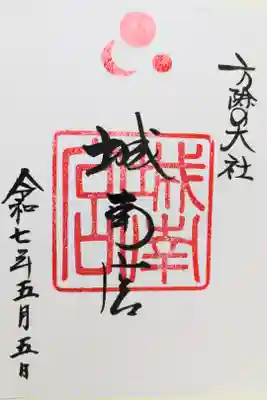 方除の大社
城南宮
城南宮
令和七年五月五日